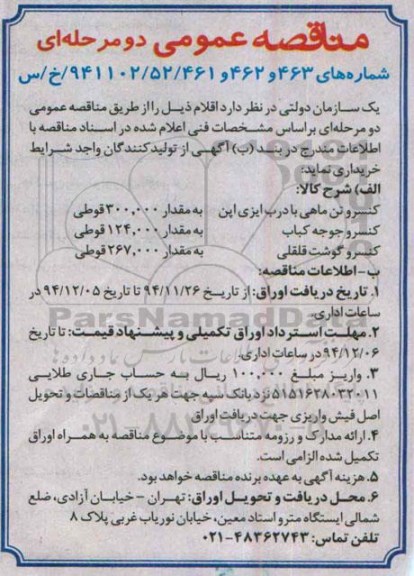 مناقصه عمومی دو مرحله‌ای
شماره‌های ۴۶۳ و ۴۶۲ و ۹۴۱۱۰۲/۵۲/۴۶۱/خ/س
یک سازمان دولتی در نظر دارد اقلام ذیل را از طریق مناقصه عمومی
دو مرحله‌ای بر اساس مشخصات فنی اعلام شده در اسناد مناقصه با
اطلاعات مندرج در بند (ب) آگهی از تولیدکنندگان واجد شرایط
خریداری نماید:
الف) شرح کالا:
کنسرو تن ماهی با درب ایزی اپن به مقدار ۳۰۰,۰۰۰ قوطی
کنسرو جوجه کباب به مقدار ۱۲۴,۰۰۰ قوطی
کنسرو گوشت قلقلی به مقدار ۲۶۷,۰۰۰ قوطی
ب-اطلاعات مناقصه:
۱. تاریخ دریافت اوراق: از تاریخ ۹۴/۱۱/۲۶ تا تاریخ ۹۴/۱۲/۰۵ در
ساعات اداری.
۲. مهلت استرداد اوراق تکمیلی و پیشنهاد قیمت: تا تاریخ
۹۴/۱۲/۰۶ در ساعات اداری.
۳. واریز مبلغ ۱۰۰,۰۰۰ ریال به حساب جاری طلایی
۵۱۵۱۶۲۸۰۳۲۰۱۱ نزد بانک سپه جهت هر یک از مناقصات و تحویل
اصل فیش واریزی جهت دریافت اوراق
۴. ارائه مدارک و رزومه متناسب با موضوع مناقصه به همراه اوراق
تکمیل شده الزامی است.
۵. هزینه آگهی به عهده برنده مناقصه خواهد بود.
۶. محل دریافت و تحویل اوراق: تهران - خیابان آزادی، ضلع
شمالی ایستگاه مترو استاد معین، خیابان نوریاب غربی پلاک ۸
تلفن تماس: ۴۸۳۶۲۷۴۳-۰۲۱
ParsNamadData